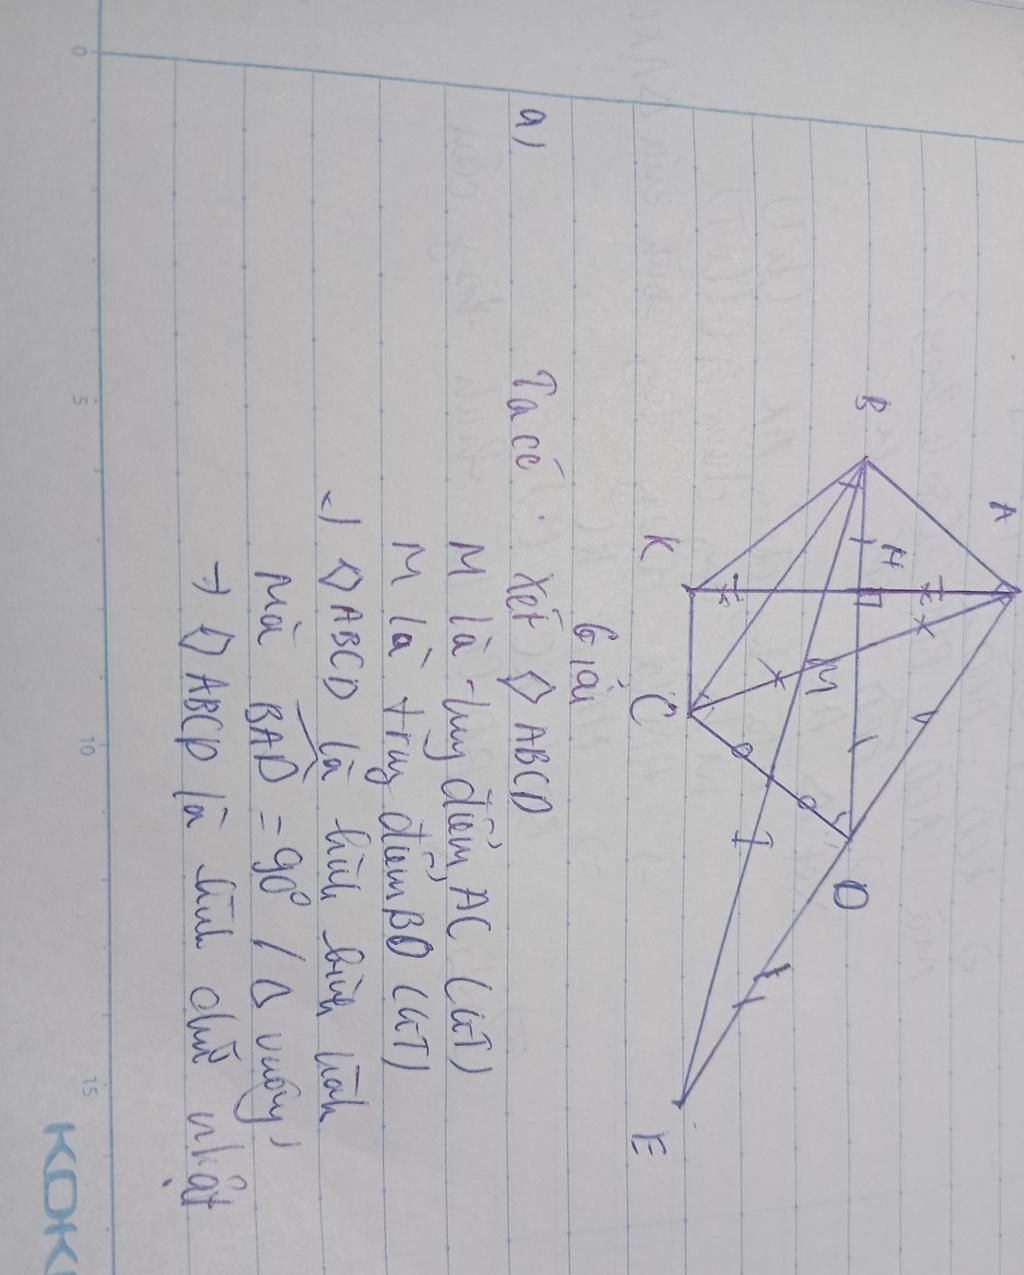 A
B
H
M
D
K
C
E
Giải
a) Ta có: Xét ◇ ABCD
M là trung điểm AC (GT)
M là trung điểm BD (GT)
=) ◇ ABCD là hình bình hành
Mà BAD = 90° (Δ vuông)
→) ◇ ABCD là hình chữ nhật
0 5 10 15